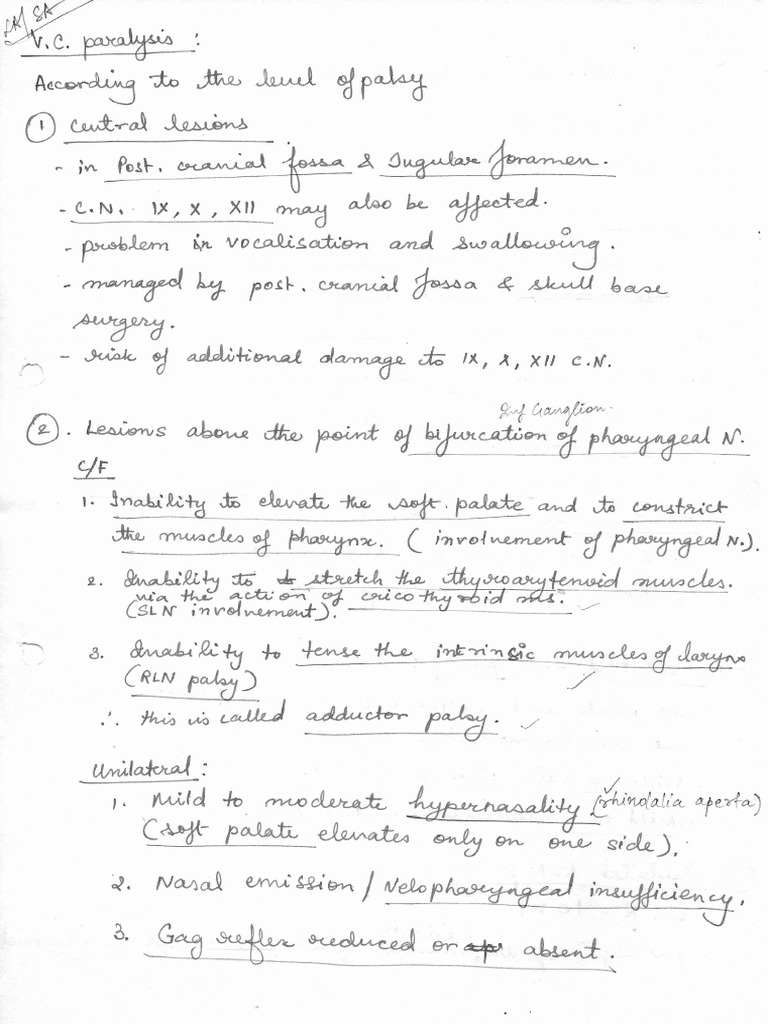 LA/SA
V.C. paralysis :
According to the level of palsy
① Central lesions
- in Post. cranial fossa & Jugular foramen.
- C.N. IX, X, XII may also be affected.
- problem in vocalisation and swallowing.
- managed by post. cranial fossa & skull base
surgery.
- risk of additional damage to IX, X, XII C.N.
Inf Ganglion.
②. Lesions above the point of bifurcation of pharyngeal N.
C/F
1. Inability to elevate the soft palate and to constrict
the muscles of pharynx. (involvement of pharyngeal N.).
2. Inability to stretch the thyroarytenoid muscles.
via the action of cricothyroid ms.
(SLN involvement).
3. Inability to tense the intrinsic muscles of larynx
(RLN palsy)
∴ this is called adductor palsy.
Unilateral :
1. Mild to moderate hypernasality (rhinolalia aperta)
(soft palate elevates only on one side).
2. Nasal emission / Velopharyngeal insufficiency.
3. Gag reflex reduced or absent.